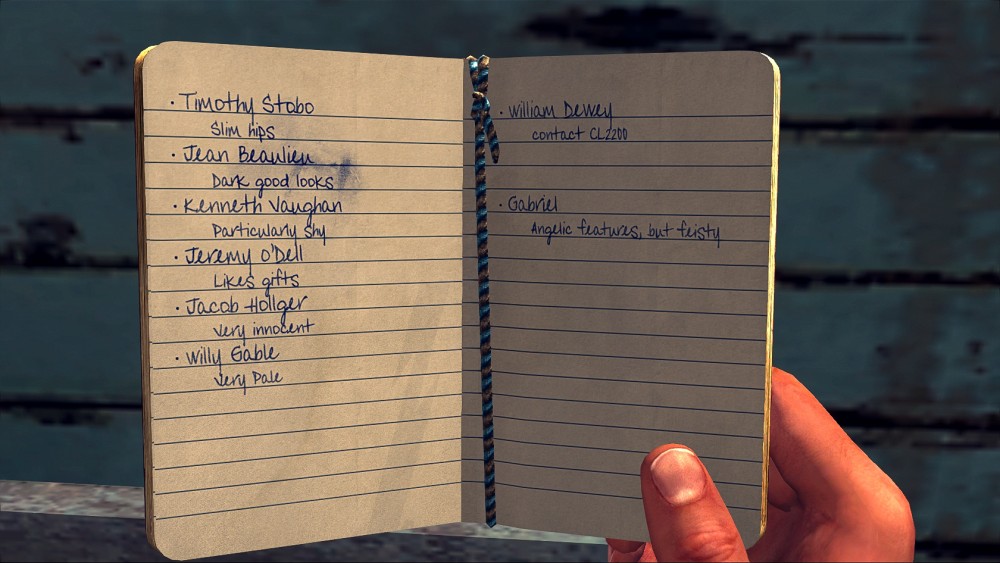 · Timothy Stobo
Slim hips
· Jean Beaulieu
Dark good looks
· Kenneth Vaughan
Particularly shy
· Jeremy O'Dell
Likes gifts
· Jacob Hollger
very innocent
· Willy Gable
very Pale
· William Dewey
contact CL2200
· Gabriel
Angelic features, but feisty